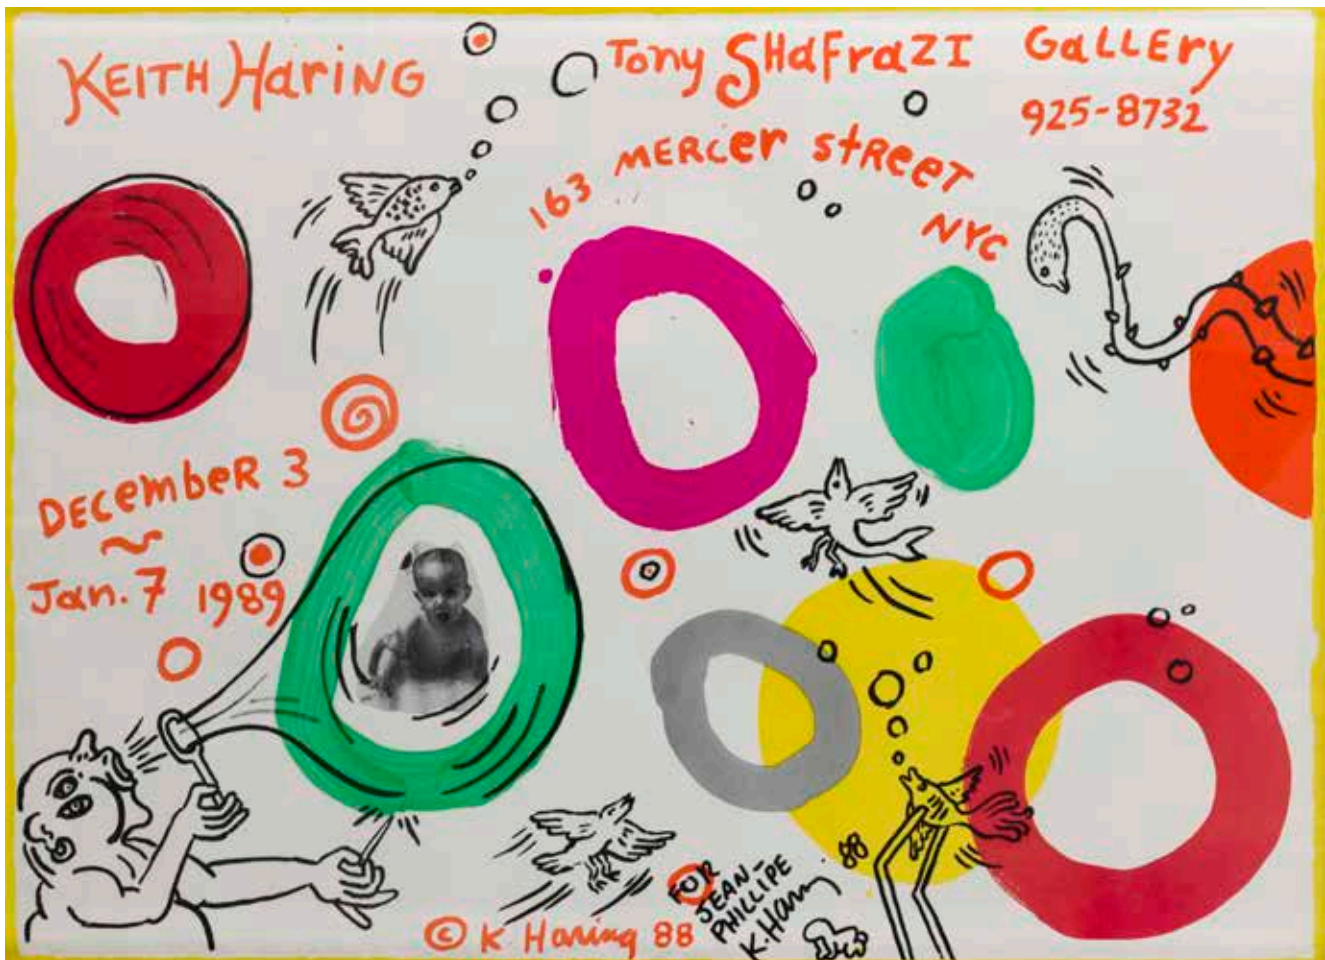 KEITH HarinG
Tony SHaFraZI GaLLEry
925-8732
163 MERCer StReeT
NYC
DECembeR 3
~
Jan. 7 1989
© K Haring 88
FOR
JEAN-
PHILLIPE
K. Haring 88